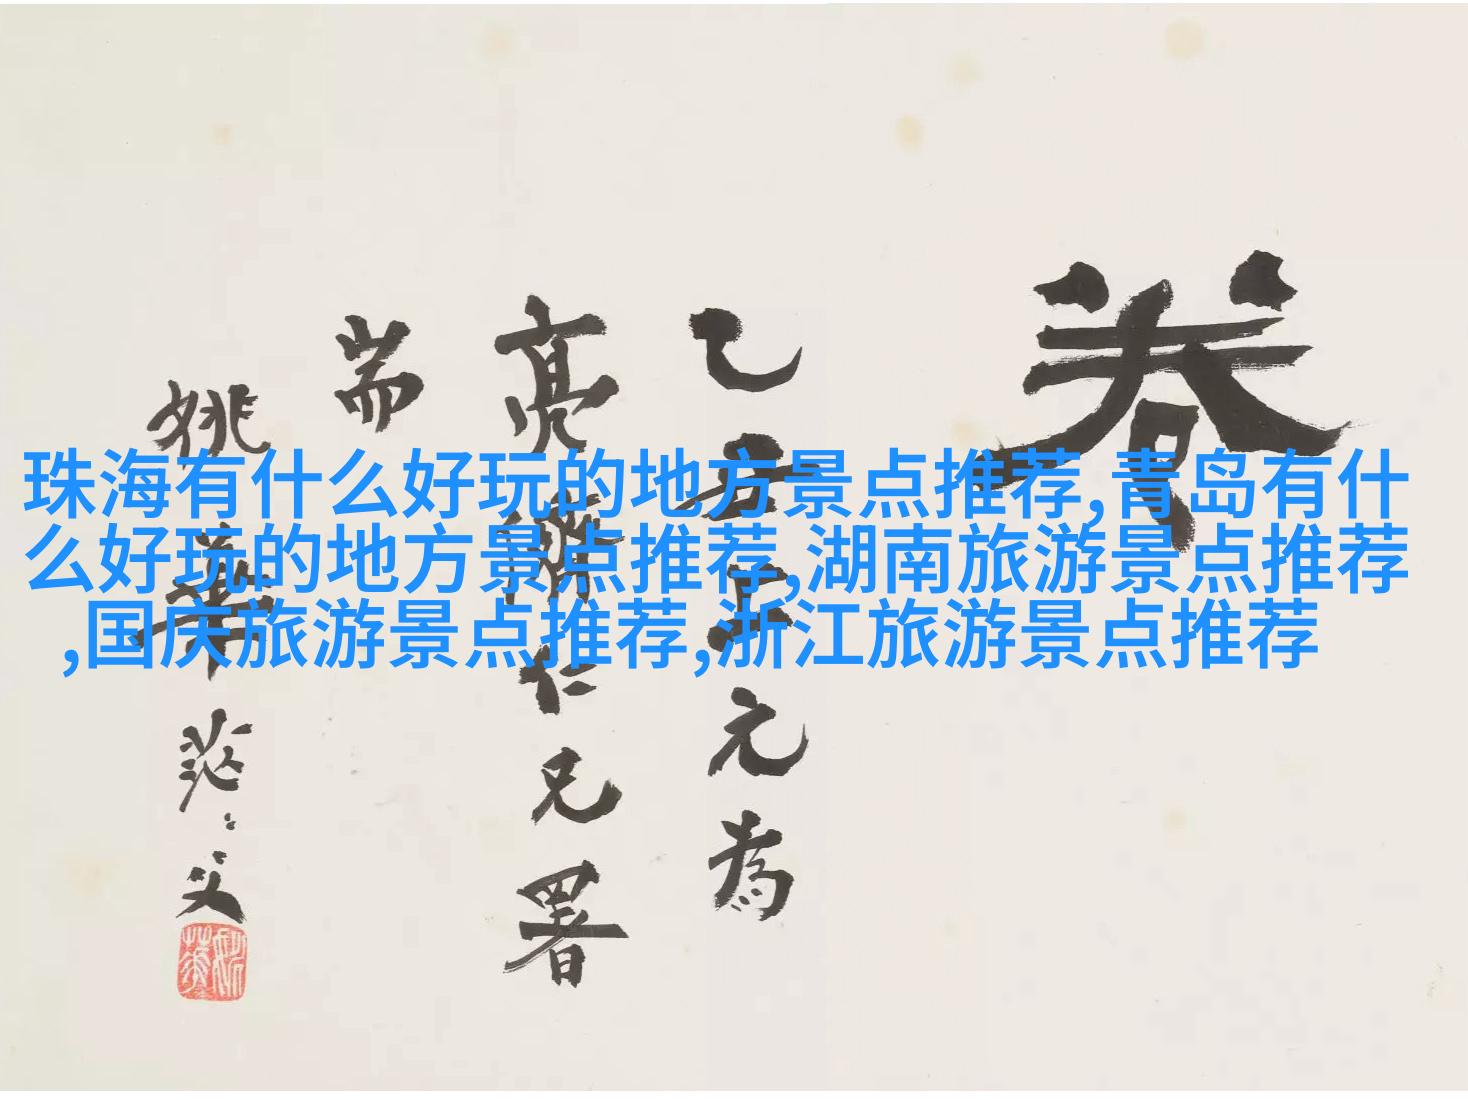 珠海有什么好玩的地方景点推荐,青岛有什
么好玩的地方景点推荐,湖南旅游景点推荐
,国庆旅游景点推荐,浙江旅游景点推荐
卷
乙丑上元為
亮儕仁兄署
耑
姚華茫〻父